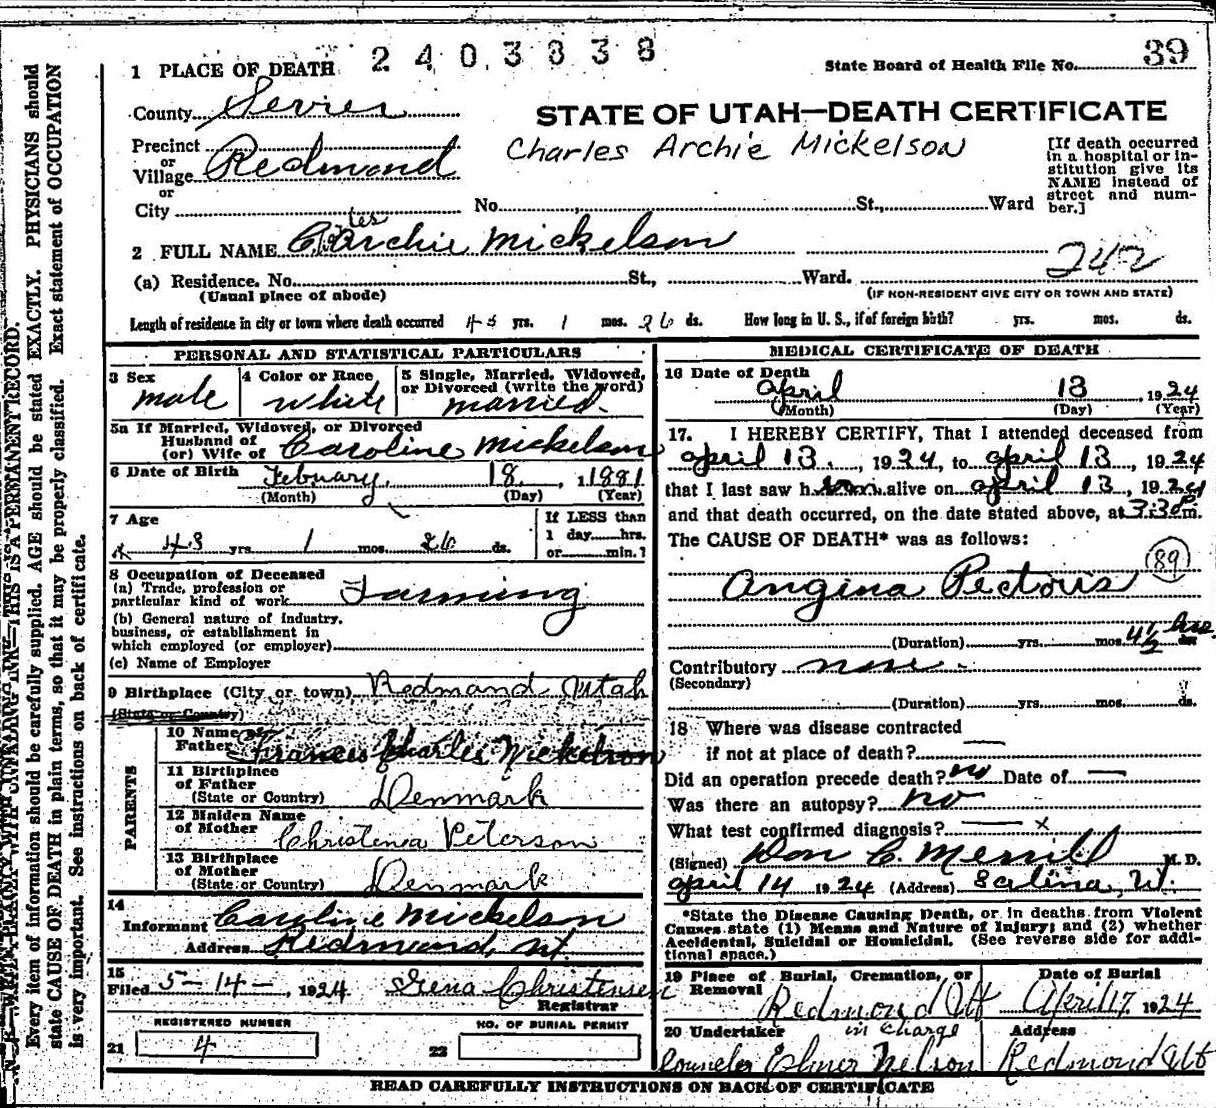 2403838
39
1 PLACE OF DEATH
State Board of Health File No.
County Sevier
STATE OF UTAH—DEATH CERTIFICATE
Precinct
or
Village Redmond
Charles Archie Mickelson
[If death occurred
in a hospital or in-
stitution give its
NAME instead of
street and num-
ber.]
or
City No. St., Ward
2 FULL NAME Archie Mickelson
242
(a) Residence. No. St., Ward.
(Usual place of abode)
(IF NON-RESIDENT GIVE CITY OR TOWN AND STATE)
Length of residence in city or town where death occurred 43 yrs. 1 mos. 26 ds. How long in U. S., if of foreign birth? yrs. mos. ds.
PERSONAL AND STATISTICAL PARTICULARS
3 Sex
male
4 Color or Race
White
5 Single, Married, Widowed,
or Divorced (write the word)
married.
5a If Married, Widowed, or Divorced
Husband of
(or) Wife of Caroline Mickelson
6 Date of Birth Febuary. 18, 1881
(Month) (Day) (Year)
7 Age
43 yrs. 1 mos. 26 ds.
If LESS than
1 day hrs.
or min.?
8 Occupation of Deceased
(a) Trade, profession or
particular kind of work Farming
(b) General nature of industry,
business, or establishment in
which employed (or employer)
(c) Name of Employer
9 Birthplace (City or town) Redmond Utah
(State or Country)
PARENTS
10 Name of
Father Francis Charles Mickelson
11 Birthplace
of Father
(State or Country) Denmark
12 Maiden Name
of Mother Christenea Peterson
13 Birthplace
of Mother
(State or Country) Denmark
14
Informant Caroline Mickelson
Address Redmond, Ut.
15
Filed 5-14-, 1924 Gena Christensen
Registrar
REGISTERED NUMBER
21 4
NO. OF BURIAL PERMIT
22
MEDICAL CERTIFICATE OF DEATH
16 Date of Death
April 13 , 1924
(Month) (Day) (Year)
17. I HEREBY CERTIFY, That I attended deceased from
april 13, 1924, to april 13, 1924
that I last saw him alive on april 13, 1924
and that death occurred, on the date stated above, at 3:30 p m.
The CAUSE OF DEATH* was as follows:
89
Angina Pectoris
(Duration) yrs. mos. 4½ hrs. ds.
Contributory none
(Secondary)
(Duration) yrs. mos. ds.
18 Where was disease contracted
if not at place of death? —
Did an operation precede death? no Date of —
Was there an autopsy? no
What test confirmed diagnosis? — x
(Signed) Don C. Merrill M. D.
april 14 1924 (Address) Salina, Ut.
*State the Disease Causing Death, or in deaths from Violent
Causes state (1) Means and Nature of Injury; and (2) whether
Accidental, Suicidal or Homicidal. (See reverse side for addi-
tional space.)
19 Place of Burial, Cremation, or
Removal
Redmond Ut
Date of Burial
April 17 1924
20 Undertaker in charge
Elmer Nelson
Address
Redmond Ut
READ CAREFULLY INSTRUCTIONS ON BACK OF CERTIFICATE
N. B.—WRITE PLAINLY WITH UNFADING INK—THIS IS A PERMANENT RECORD.
Every item of information should be carefully supplied. AGE should be stated EXACTLY. PHYSICIANS should
state CAUSE OF DEATH in plain terms, so that it may be properly classified. Exact statement of OCCUPATION
is very important. See instructions on back of certificate.